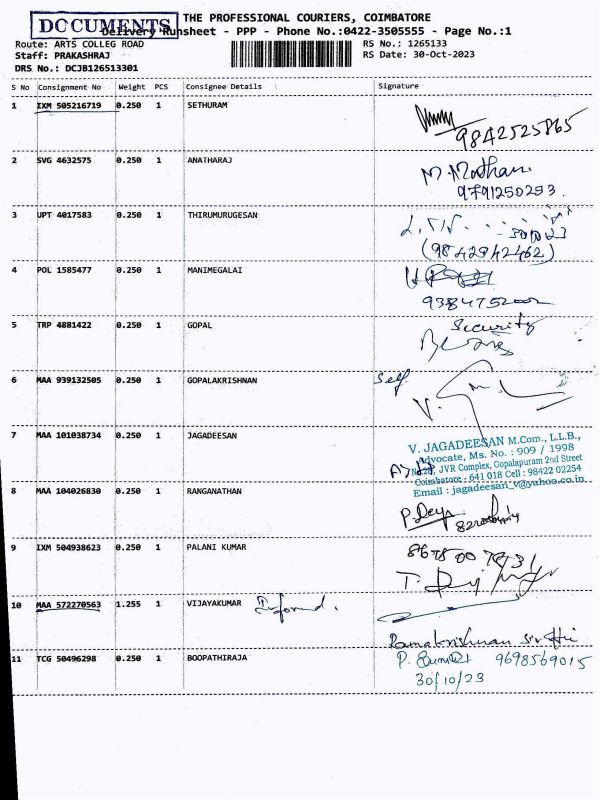 DOCUMENTS
THE PROFESSIONAL COURIERS, COIMBATORE
Delivery Runsheet - PPP - Phone No.:0422-3505555 - Page No.:1
Route: ARTS COLLEG ROAD
RS No.: 1265133
Staff: PRAKASHRAJ
RS Date: 30-Oct-2023
DRS No.: DCJB126513301
S No Consignment No Weight PCS Consignee Details Signature
1 IXM 505216719 0.250 1 SETHURAM
9842525865
2 SVG 4632575 0.250 1 ANATHARAJ
M.Mathan
9791250293.
3 UPT 4017583 0.250 1 THIRUMURUGESAN
(9842942462)
4 POL 1585477 0.250 1 MANIMEGALAI
5 TRP 4881422 0.250 1 GOPAL
Security
6 MAA 939132505 0.250 1 GOPALAKRISHNAN
Self
7 MAA 101038734 0.250 1 JAGADEESAN
V. JAGADEESAN M.Com., L.L.B.,
Advocate, Ms. No. : 909 / 1998
JVR Complex, Gopalapuram 2nd Street
Coimbatore - 641 018 Cell : 98422 02254
Email : jagadeesan_v@yahoo.co.in
8 MAA 104026830 0.250 1 RANGANATHAN
9 IXM 504938623 0.250 1 PALANI KUMAR
10 MAA 572270563 1.255 1 VIJAYAKUMAR Informed.
Ramakrishnan
11 TCG 50496298 0.250 1 BOOPATHIRAJA
9698569015
30/10/23